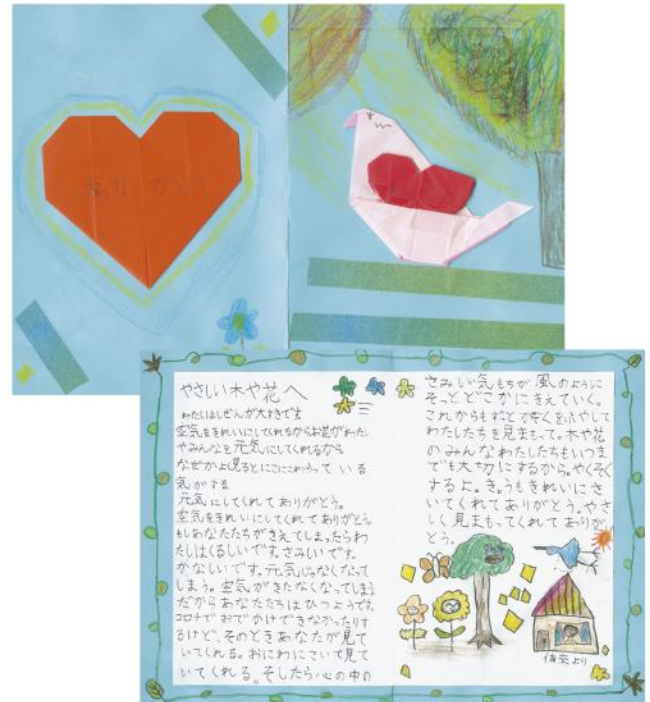 ありがとう
やさしい木や花へ
わたしはしぜんが大すきです
空気をきれいにしてくれるからお花がわたし
やみんなを元気にしてくれるから
なぜかよく見るとにこにこわらって いる
気がする
元気にしてくれてありがとう。
空気をきれいにしてくれてありがとう。
もしあなたたちがきえてしまったらわ
たしはくるしいです。さみしいです。
かなしいです。元気じゃなくなって
しまう。空気がきたなくなってしまう
だからあなたたちはひつようです。
コロナでおでかけできなかったりす
るけど、そのときあなたが見て
いてくれる。おにわにさいて見て
いてくれる。そしたら心の中の
さみしい気もちが風のように
そっとどこかにきえていく。
これからももっとかぞくをふやして
わたしたちを見まもって。木や花
のみんなわたしたちもいつま
でも大切にするから。やくそく
するよ。きょうもきれいにさ
いてくれてありがとう。やさ
しく見まもってくれてありが
とう。
より